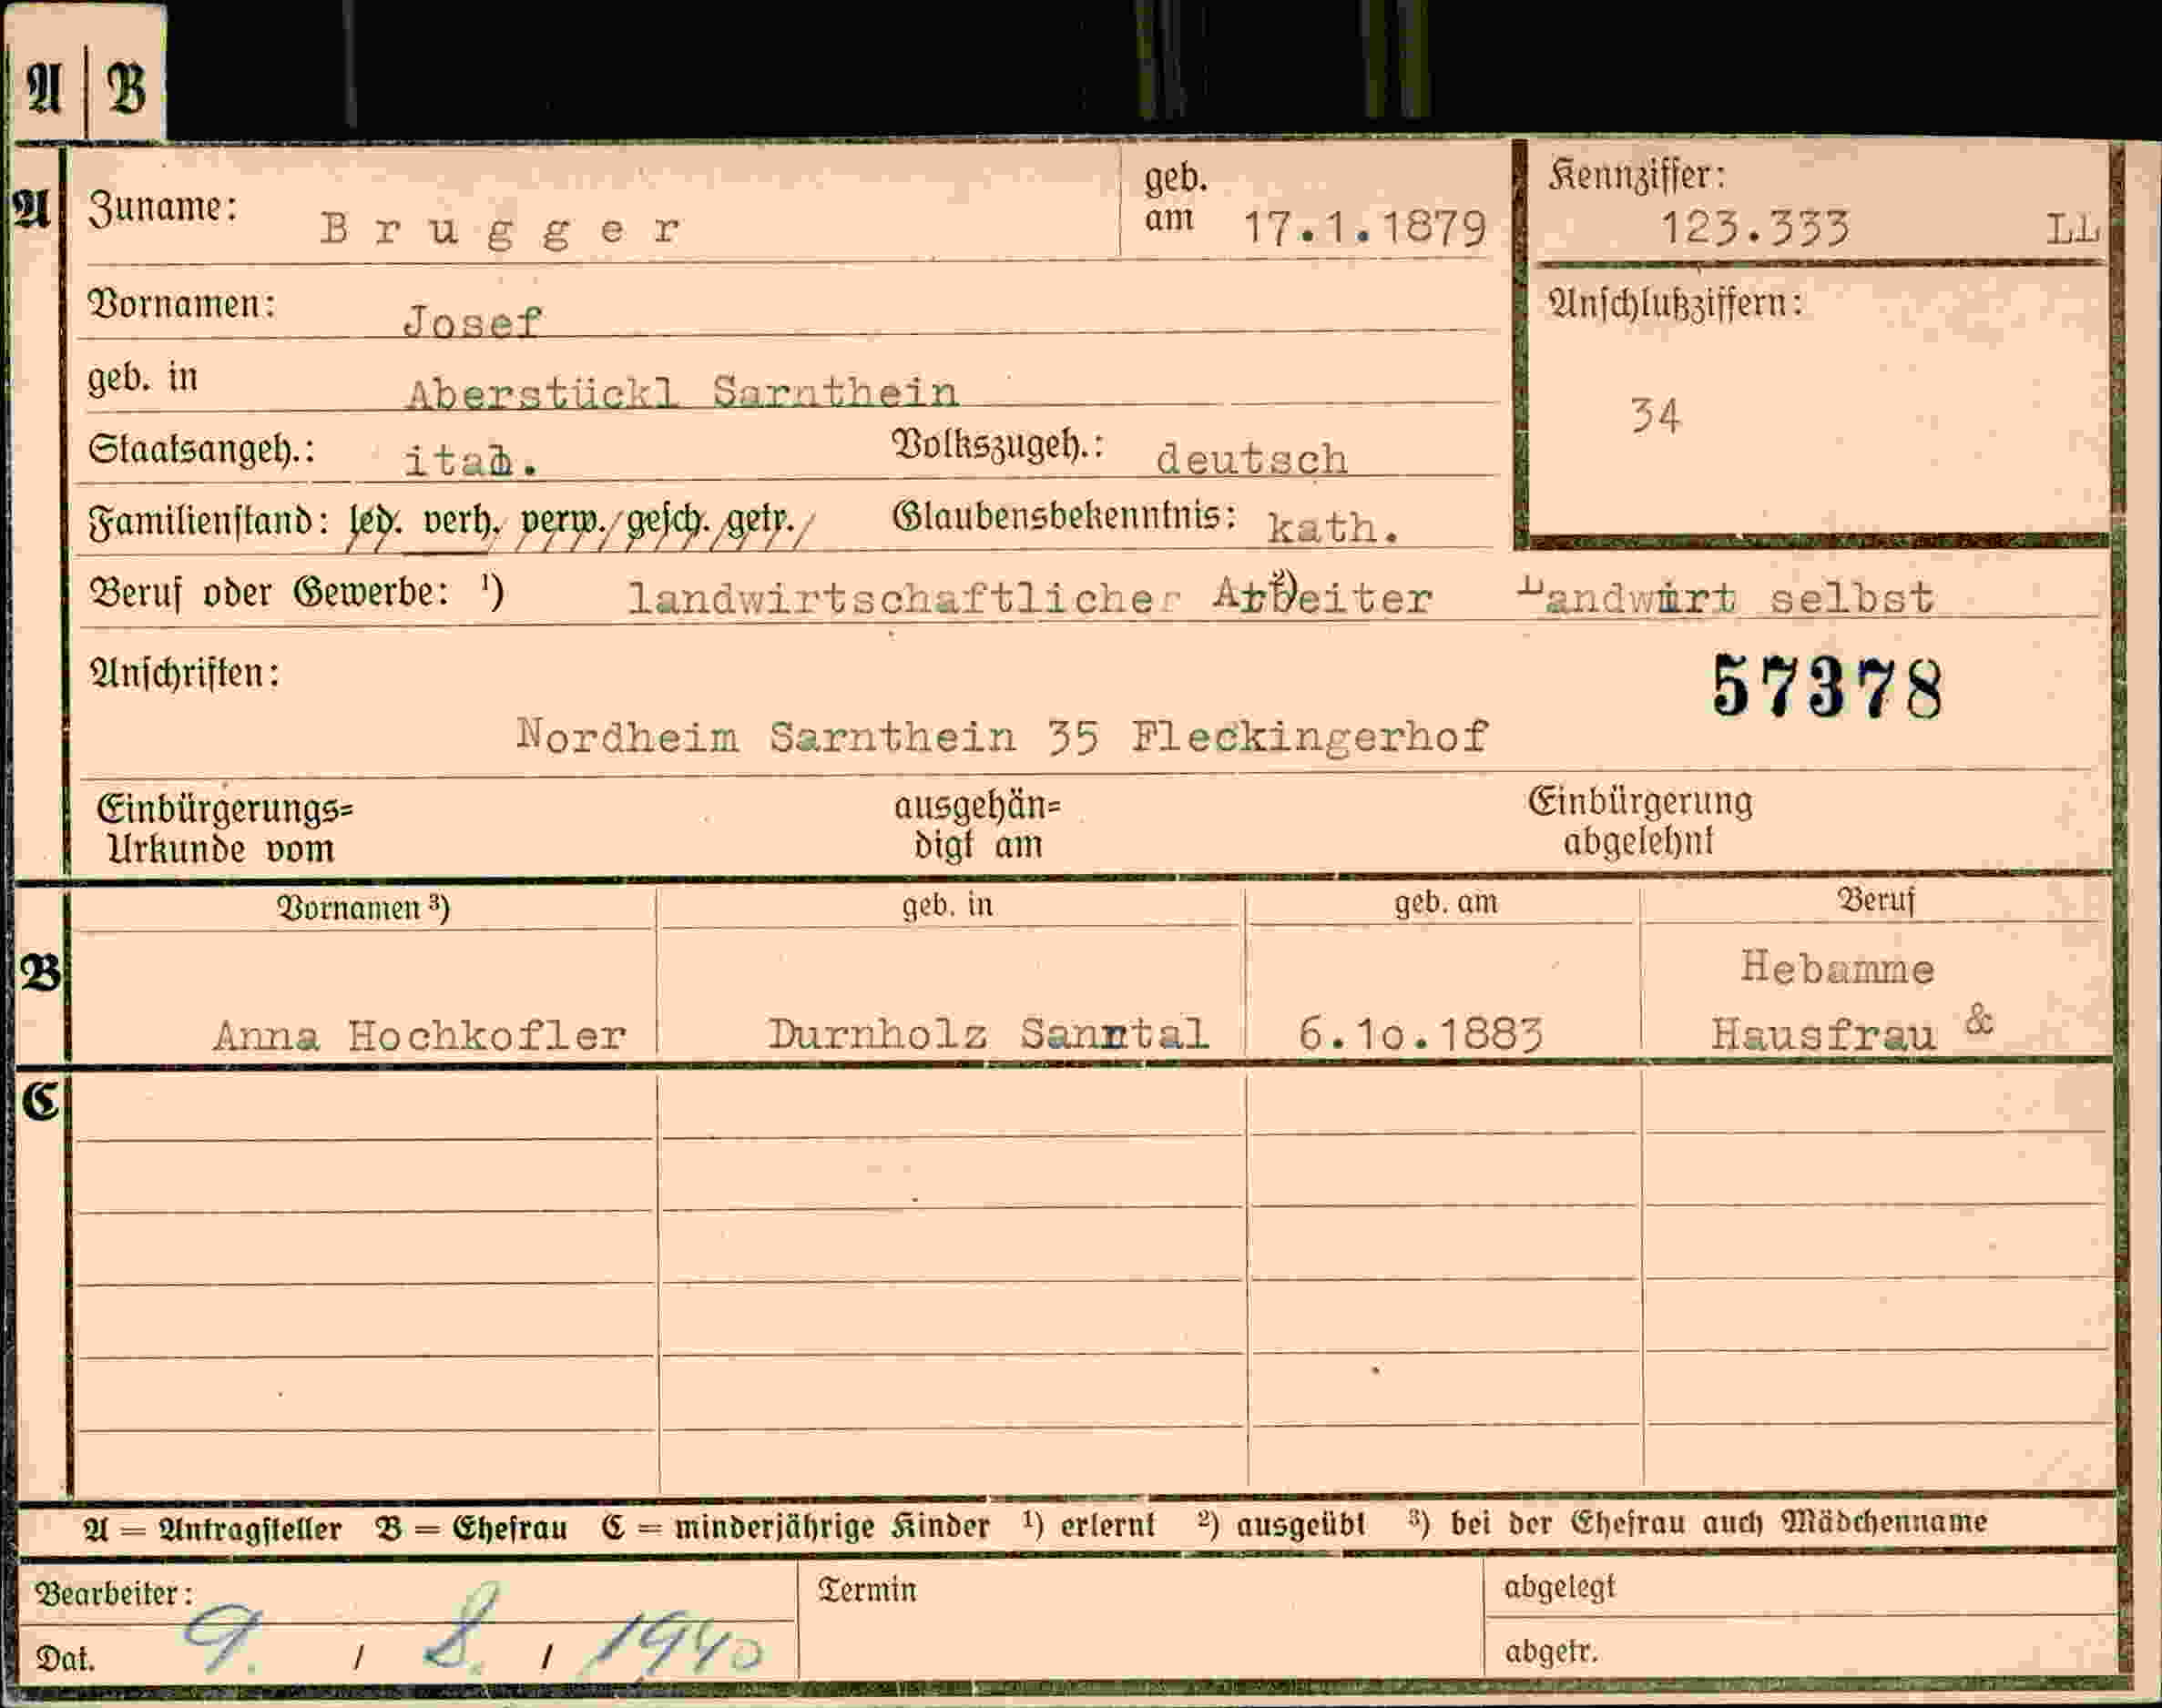 A | B
A Zuname: Brugger geb. am 17.1.1879 Kennziffer: 123.333 LL
Vornamen: Josef Anschlußziffern:
geb. in Aberstückl Sarnthein 34
Staatsangeh.: ital. Volkszugeh.: deutsch
Familienstand: led. verh. verw. gesch. getr. Glaubensbekenntnis: kath.
Beruf oder Gewerbe: ¹) landwirtschaftlicher Arbeiter ²) Landwirt selbst
Anschriften: 57378
Nordheim Sarnthein 35 Fleckingerhof
Einbürgerungs= ausgehän= Einbürgerung
Urkunde vom digt am abgelehnt
Vornamen ³) geb. in geb. am Beruf
B Hebamme
Anna Hochkofler Durnholz Sarntal 6.1o.1883 Hausfrau &
C
A = Antragsteller B = Ehefrau C = minderjährige Kinder ¹) erlernt ²) ausgeübt ³) bei der Ehefrau auch Mädchenname
Bearbeiter: Termin abgelegt
Dat. 9. / 8. / 1940 abgetr.